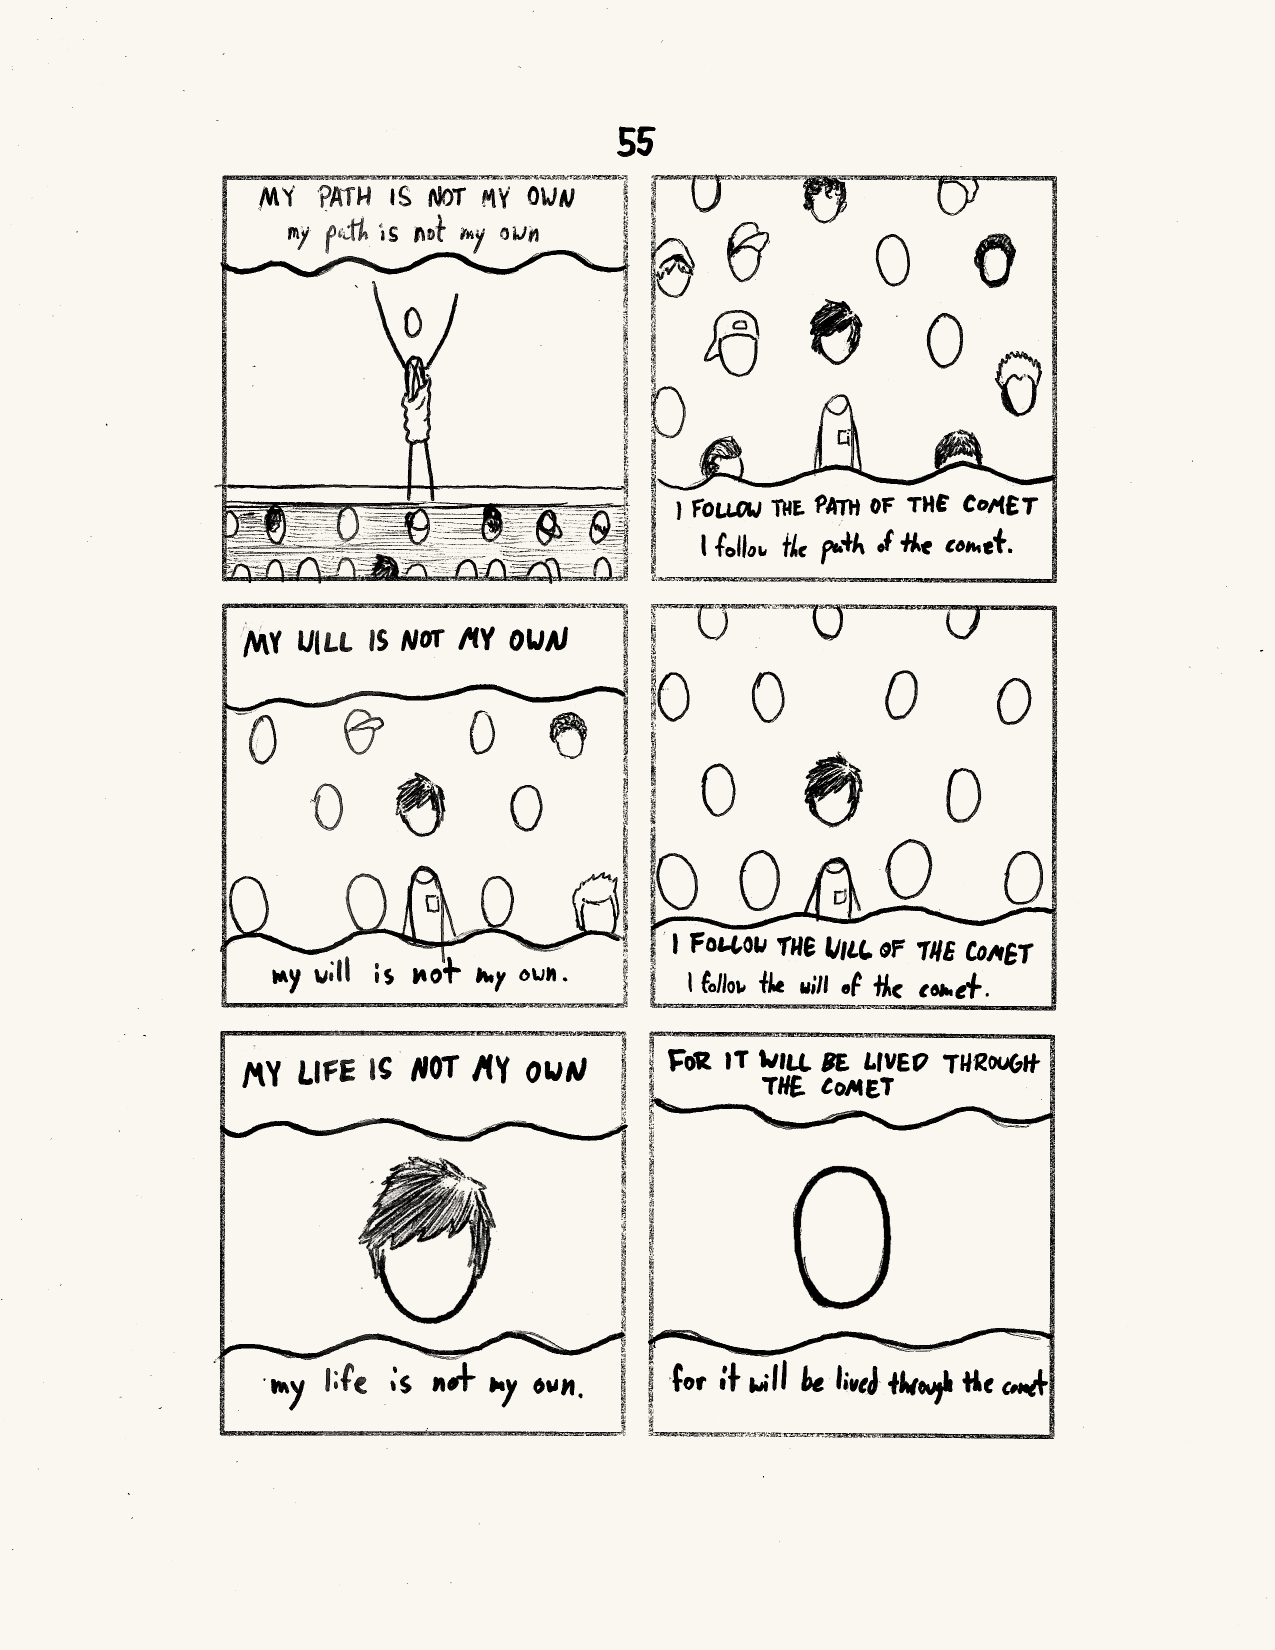 55
MY PATH IS NOT MY OWN
my path is not my own
I FOLLOW THE PATH OF THE COMET
I follow the path of the comet.
MY WILL IS NOT MY OWN
my will is not my own.
I FOLLOW THE WILL OF THE COMET
I follow the will of the comet.
MY LIFE IS NOT MY OWN
my life is not my own.
FOR IT WILL BE LIVED THROUGH
THE COMET
for it will be lived through the comet